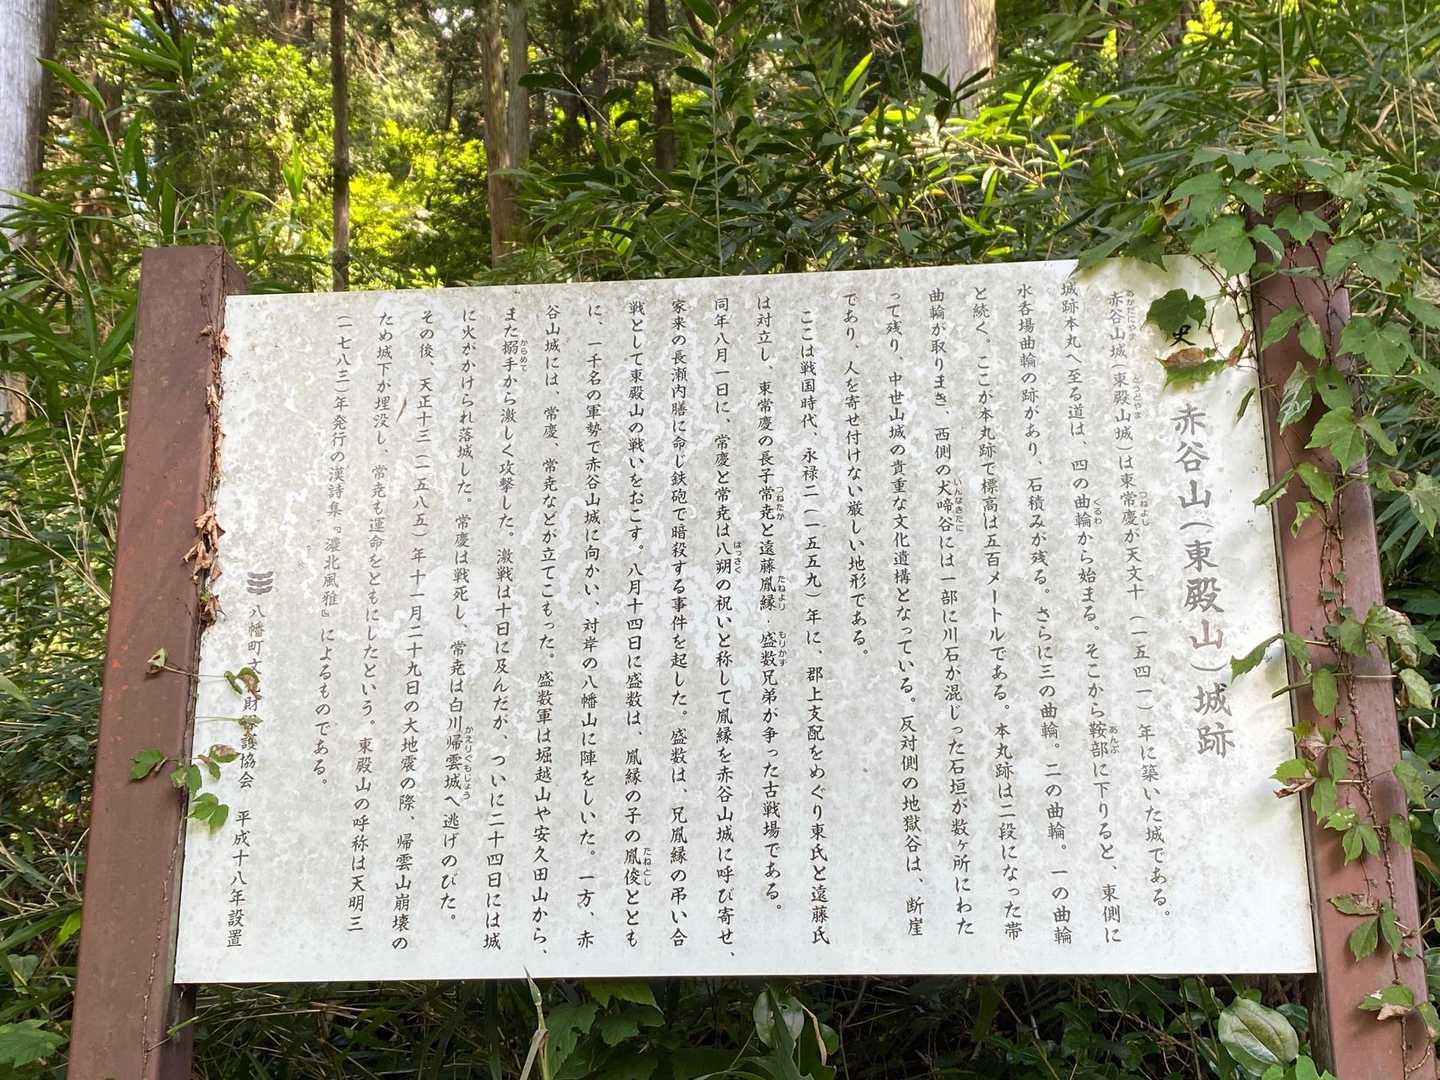 史
赤谷山(東殿山)城跡
赤谷山城(東殿山城)は東常慶が天文十(一五四一)年に築いた城である。
城跡本丸へ至る道は、四の曲輪から始まる。そこから鞍部に下りると、東側に
水呑場曲輪の跡があり、石積みが残る。さらに三の曲輪。二の曲輪。一の曲輪
と続く。ここが本丸跡で標高は五百メートルである。本丸跡は二段になった帯
曲輪が取りまき、西側の犬啼谷には一部に川石か混じった石垣が数ヶ所にわた
って残り、中世山城の貴重な文化遺構となっている。反対側の地獄谷は、断崖
であり、人を寄せ付けない厳しい地形である。
ここは戦国時代、永禄二(一五五九)年に、郡上支配をめぐり東氏と遠藤氏
は対立し、東常慶の長子常尭と遠藤胤縁・盛数兄弟が争った古戦場である。
同年八月一日に、常慶と常尭は八朔の祝いと称して胤縁を赤谷山城に呼び寄せ、
家来の長瀬内膳に命じ鉄砲で暗殺する事件を起した。盛数は、兄胤縁の弔い合
戦として東殿山の戦いをおこす。八月十四日に盛数は、胤縁の子の胤俊ととも
に、一千名の軍勢で赤谷山城に向かい、対岸の八幡山に陣をしいた。一方、赤
谷山城には、常慶、常尭などが立てこもった。盛数軍は堀越山や安久田山から、
また搦手から激しく攻撃した。激戦は十日に及んだが、ついに二十四日には城
に火がかけられ落城した。常慶は戦死し、常尭は白川帰雲城へ逃げのびた。
その後、天正十三(一五八五)年十一月二十九日の大地震の際、帰雲山崩壊の
ため城下が埋没し、常尭も運命をともにしたという。東殿山の呼称は天明三
(一七八三)年発行の漢詩集『濃北風雅』によるものである。
八幡町文化財保護協会 平成十八年設置